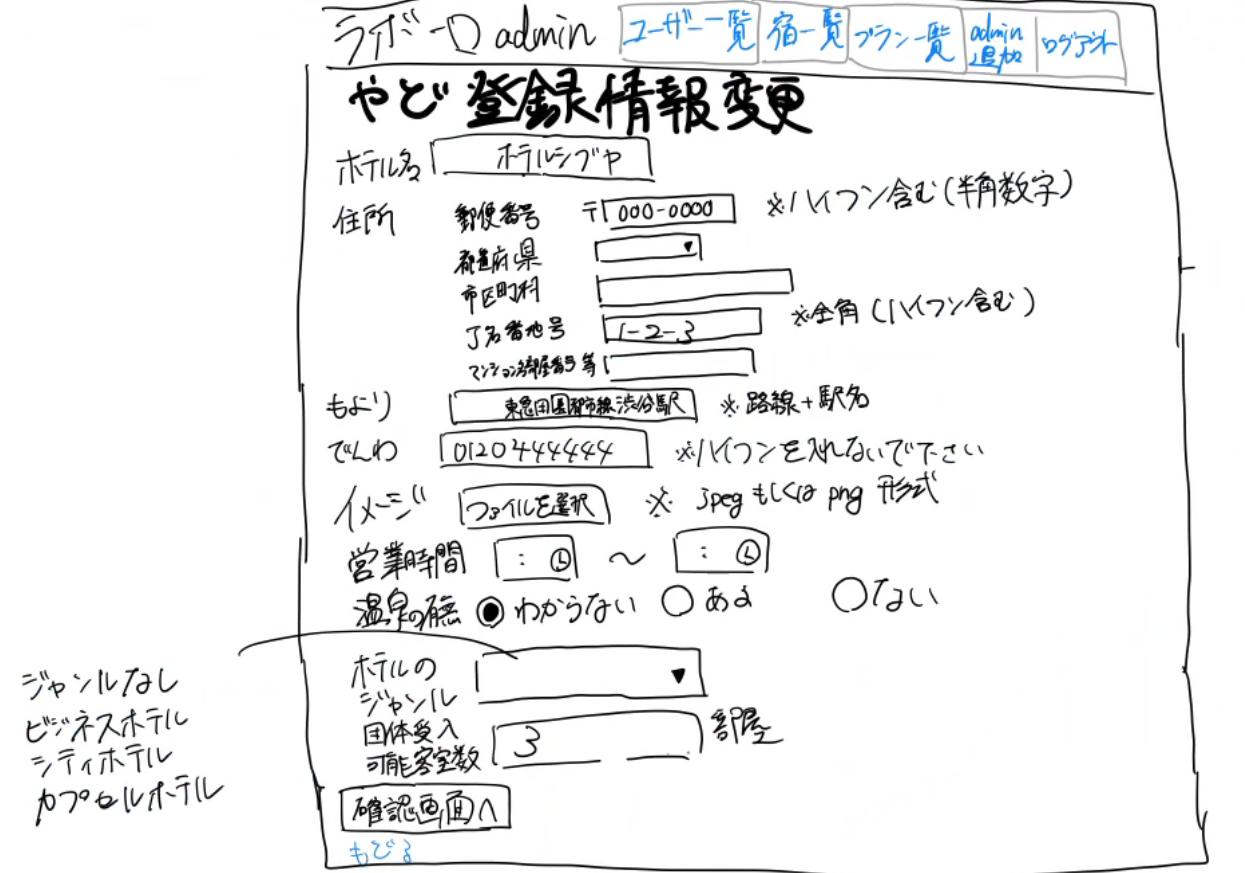 ユーザー一覧 宿一覧 プラン一覧 admin追加 ログアウト
admin
やど登録情報変更
ホテル名 ホテルシブヤ
住所 郵便番号 〒000-0000 ※ハイフン含む(半角数字)
都道府県 ▼
市区町村
丁名番地号 1-2-3 ※全角(ハイフン含む)
マンション名部屋番号等
もより 東急田園都市線渋谷駅 ※路線+駅名
でんわ 0120444444 ※ハイフンを入れないで下さい
イメージ ファイルを選択 ※ jpegもしくはpng形式
営業時間 : 〜 :
温泉の有無 わからない ある ない
ホテルのジャンル ▼
ジャンルなし
ビジネスホテル
シティホテル
カプセルホテル
団体受入可能客室数 3 部屋
確認画面へ
もどる